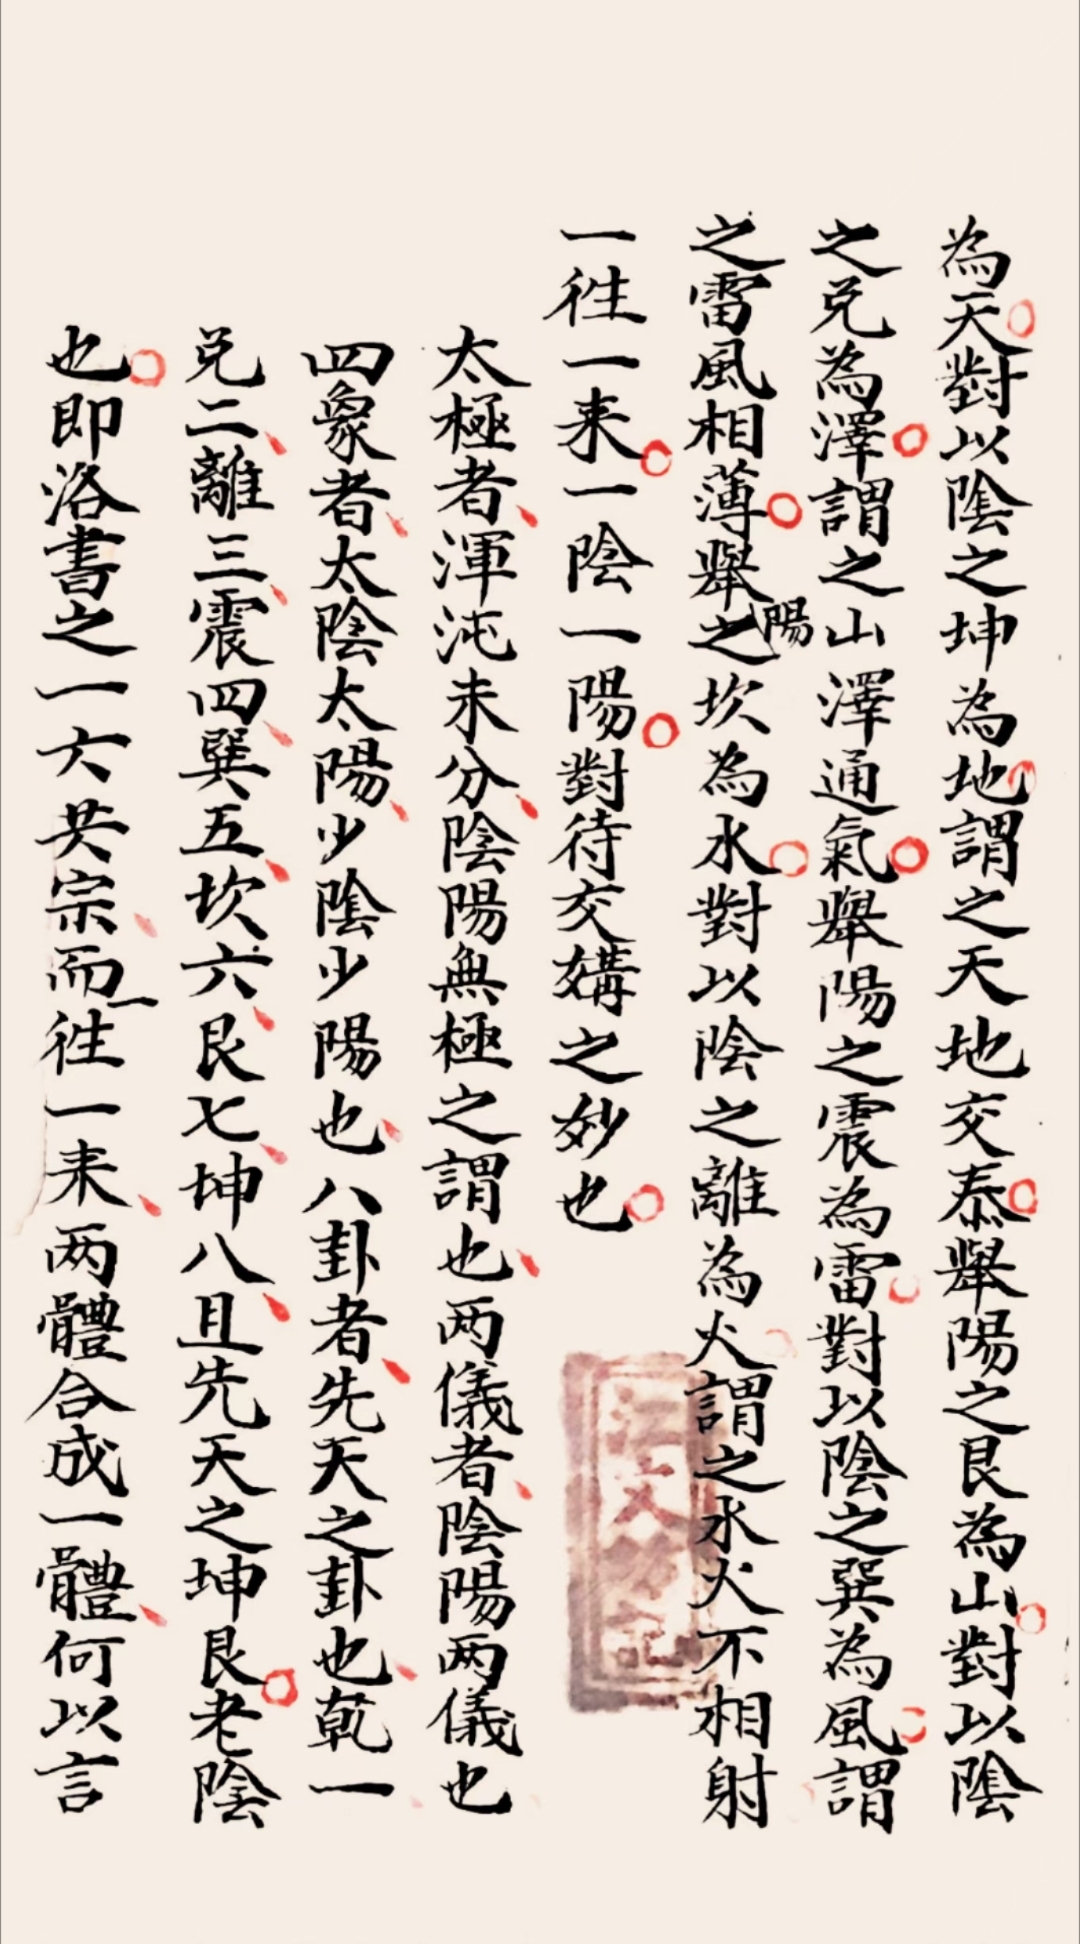 為天對以陰之坤為地謂之天地交泰舉陽之艮為山對以陰
之兑為澤謂之山澤通氣舉陽之震為雷對以陰之巽為風謂
之雷風相薄舉之陽坎為水對以陰之離為火謂之水火不相射
一徃一来一陰一陽對待交媾之妙也
太極者渾沌未分陰陽無極之謂也两儀者陰陽两儀也
四象者太陰太陽少陰少陽也八卦者先天之卦也乾一
兑二離三震四巽五坎六艮七坤八且先天之坤艮老陰
也即洛書之一六共宗而一徃一来两體合成一體何以言